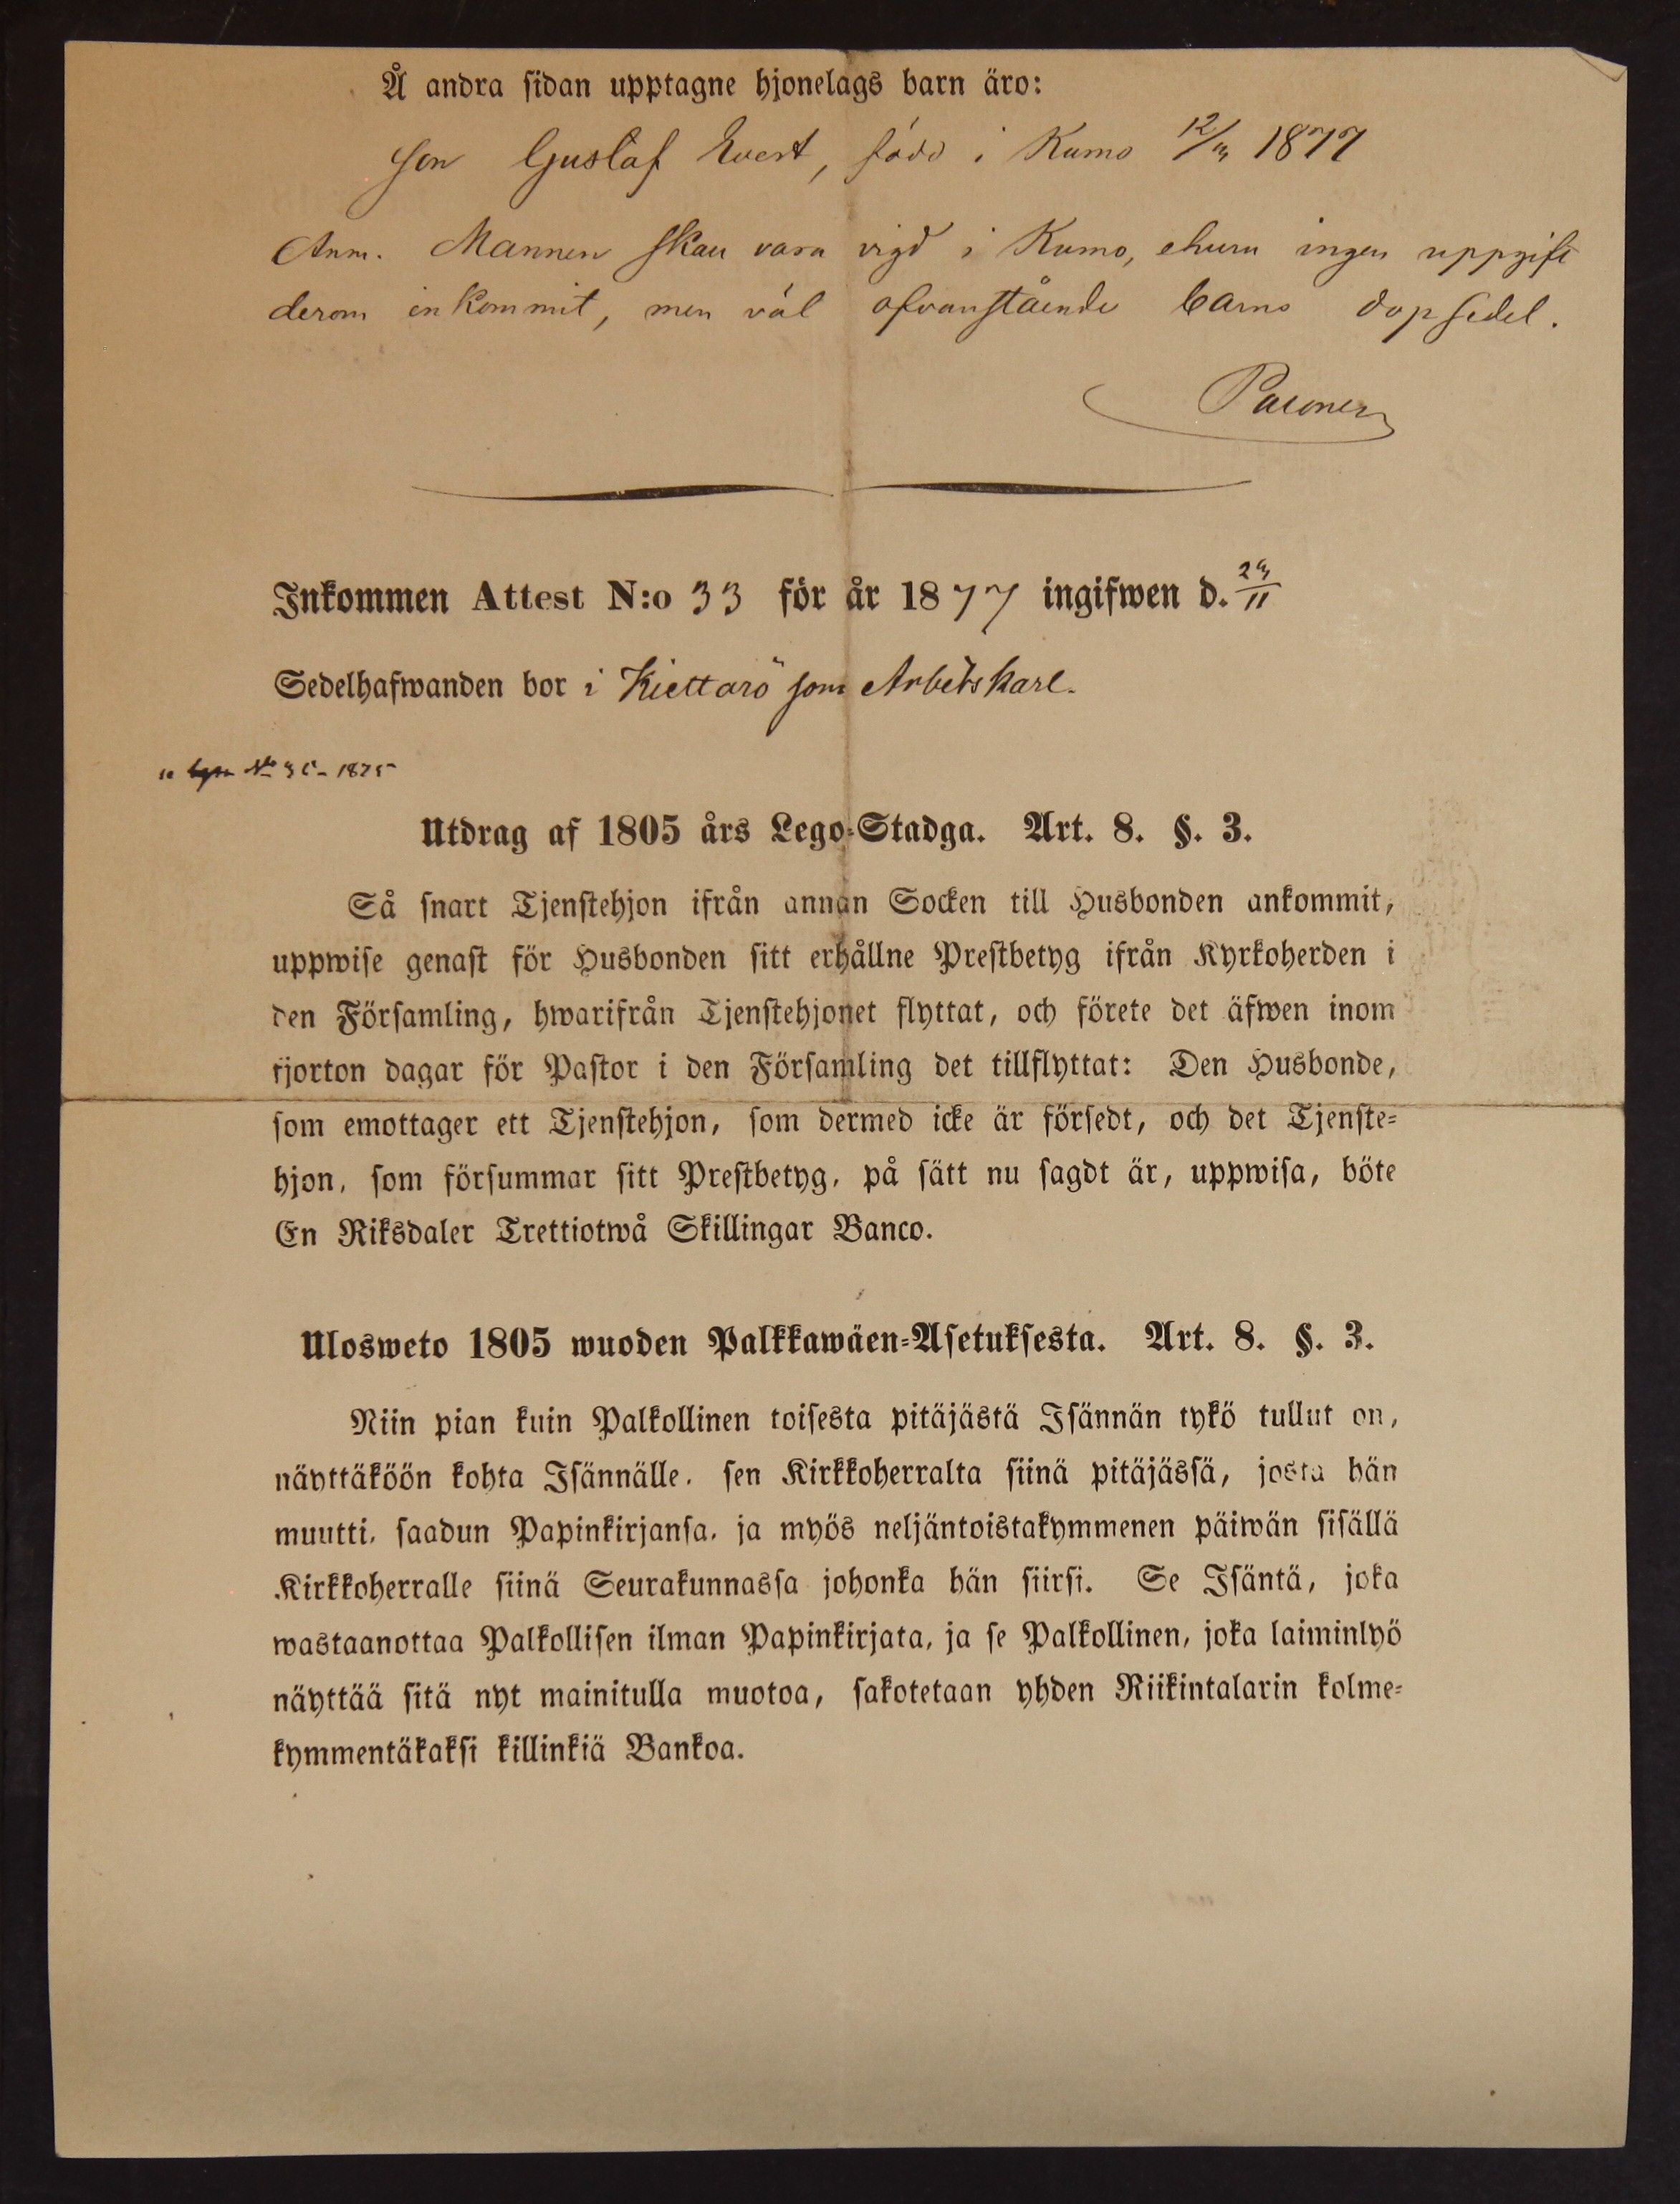 Å andra sidan upptagne hjonelags barn äro:
Son Gustaf Evert, född i Kumo 12/3 1877
Anm. Mannen skall vara vigd i Kumo, ehuru ingen uppgift
derom inkommit, men väl ofvanstående barns dopsedel.
Inkommen Attest N:o 33 för år 1877 ingifwen d. 29/11
Sedelhafwanden bor i Kiettarö som Arbetskarl.
No 35 - 1875
Utdrag af 1805 års Lego-Stadga. Art. 8. §. 3.
Så snart Tjenstehjon ifrån annan Socken till Husbonden ankommit,
uppwise genast för Husbonden sitt erhållne Prestbetyg ifrån Kyrkoherden i
den Församling, hwarifrån Tjenstehjonet flyttat, och förete det äfwen inom
fjorton dagar för Pastor i den Församling det tillflyttat: Den Husbonde,
som emottager ett Tjenstehjon, som dermed icke är försedt, och det Tjenste-
hjon, som försummar sitt Prestbetyg, på sätt nu sagdt är, uppwisa, böte
En Riksdaler Trettiotwå Skillingar Banco.
Ulosweto 1805 wuoden Palkkawäen-Asetuksesta. Art. 8. §. 3.
Niin pian kuin Palkollinen toisesta pitäjästä Isännän tykö tullut on,
näyttäköön kohta Isännälle, sen Kirkkoherralta siinä pitäjässä, josta hän
muutti, saadun Papinkirjansa, ja myös neljäntoistakymmenen päiwän sisällä
Kirkkoherralle siinä Seurakunnassa johonka hän siirsi. Se Isäntä, joka
wastaanottaa Palkollisen ilman Papinkirjata, ja se Palkollinen, joka laiminlyö
näyttää sitä nyt mainitulla muotoa, sakotetaan yhden Riikintalarin kolme-
kymmentäkaksi killinkiä Bankoa.